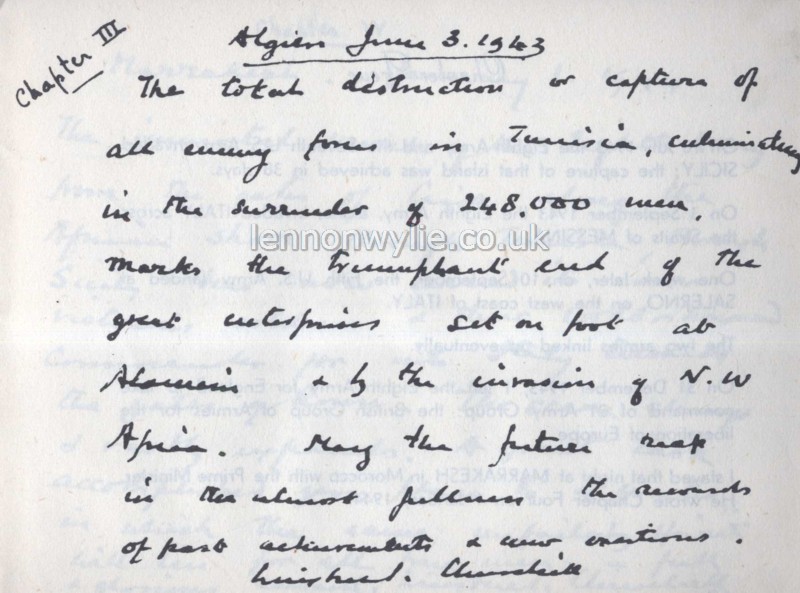 Chapter III
Algiers June 3. 1943
The total destruction or capture of
all enemy forces in Tunisia, culminating
in the surrender of 248.000 men,
lennonwylie.co.uk
marks the triumphant end of the
great enterprises set on foot at
Alamein & by the invasion of N.W
Africa. May the future reap
in the utmost fullness the rewards
of past achievements & new exertions.
Winston S. Churchill